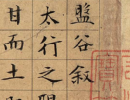 盤谷敘
太行之陽
甘而土